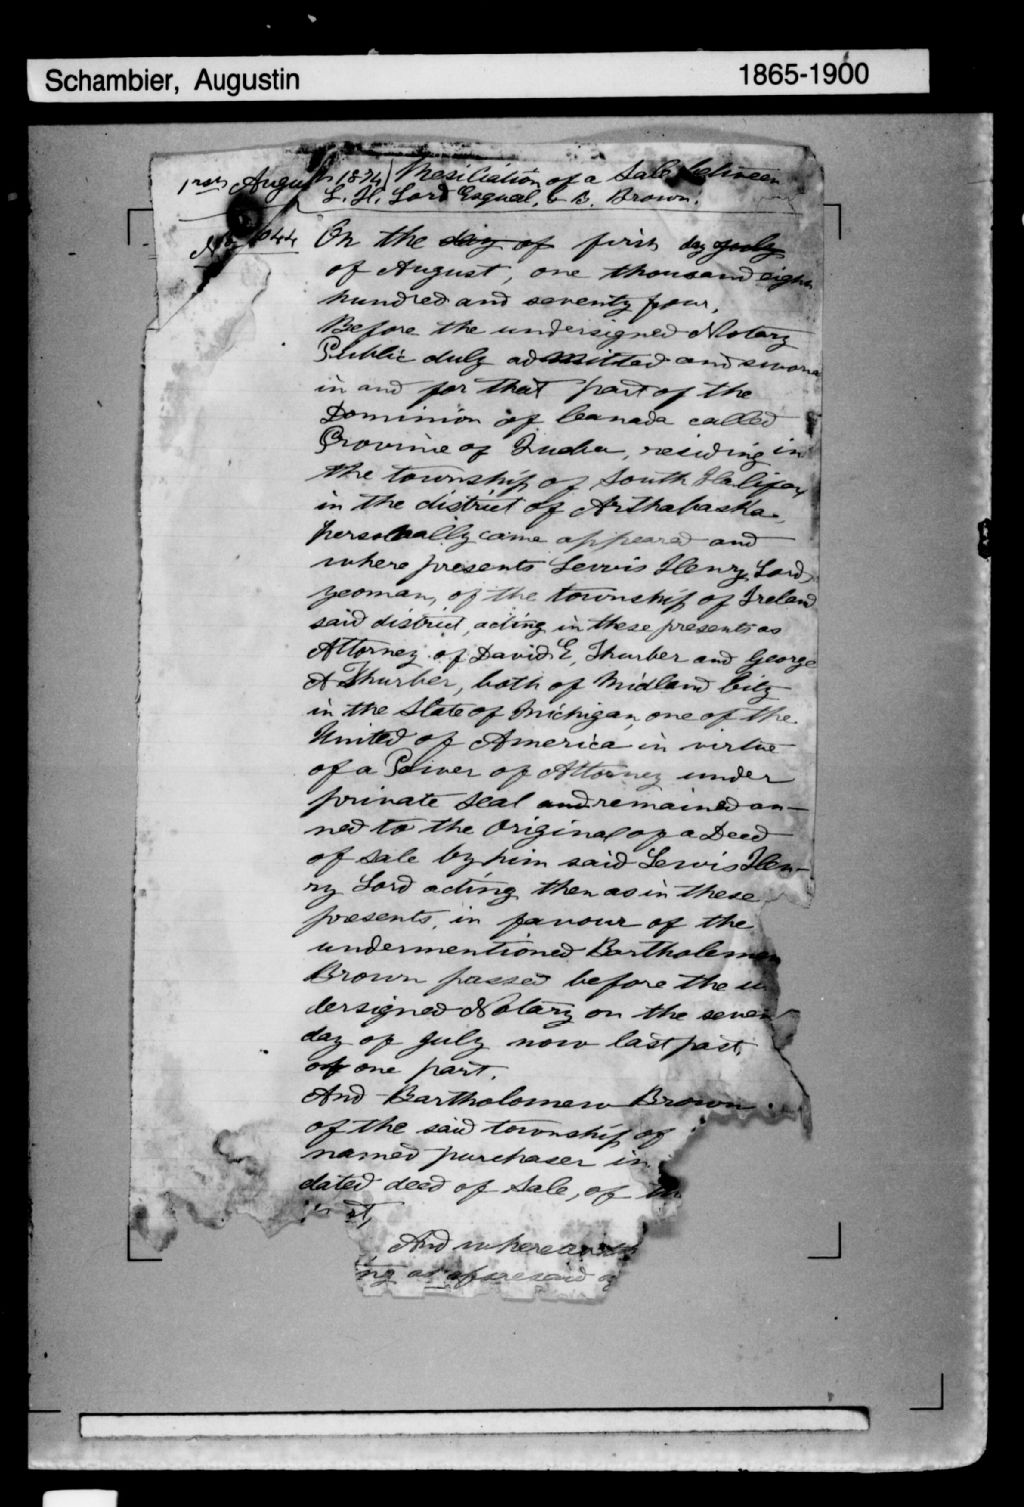 Schambier, Augustin 1865-1900
1rst August 1874 Resiliation of a Sale between
L. H. Lord Esqual, & B. Brown.
No 44
On the day of first day July
of August, one thousand eight
hundred and seventy four,
Before the undersigned Notary
Public duly admitted and sworn
in and for that part of the
Dominion of Canada called
Province of Quebec, residing in
the township of South Halifax
in the district of Arthabaska,
personally came appeared and
where presents Lewis Henry Lord,
yeoman, of the township of Ireland
said district, acting in these presents as
Attorney of David E, Thurber and George
A Thurber, both of Midland City
in the State of Michigan, one of the
United of America in virtue
of a Power of Attorney under
private seal and remained an-
ned to the Original of a Deed
of Sale by him said Lewis Hen-
ry Lord acting then as in these
presents, in favour of the
undermentioned Bartholomew
Brown passed before the u
dersigned Notary on the seven
day of July now last past,
of one part.
And Bartholomew Brown
of the said township of
named purchaser in
dated deed of Sale, of th
And whereas
ng as aforesaid